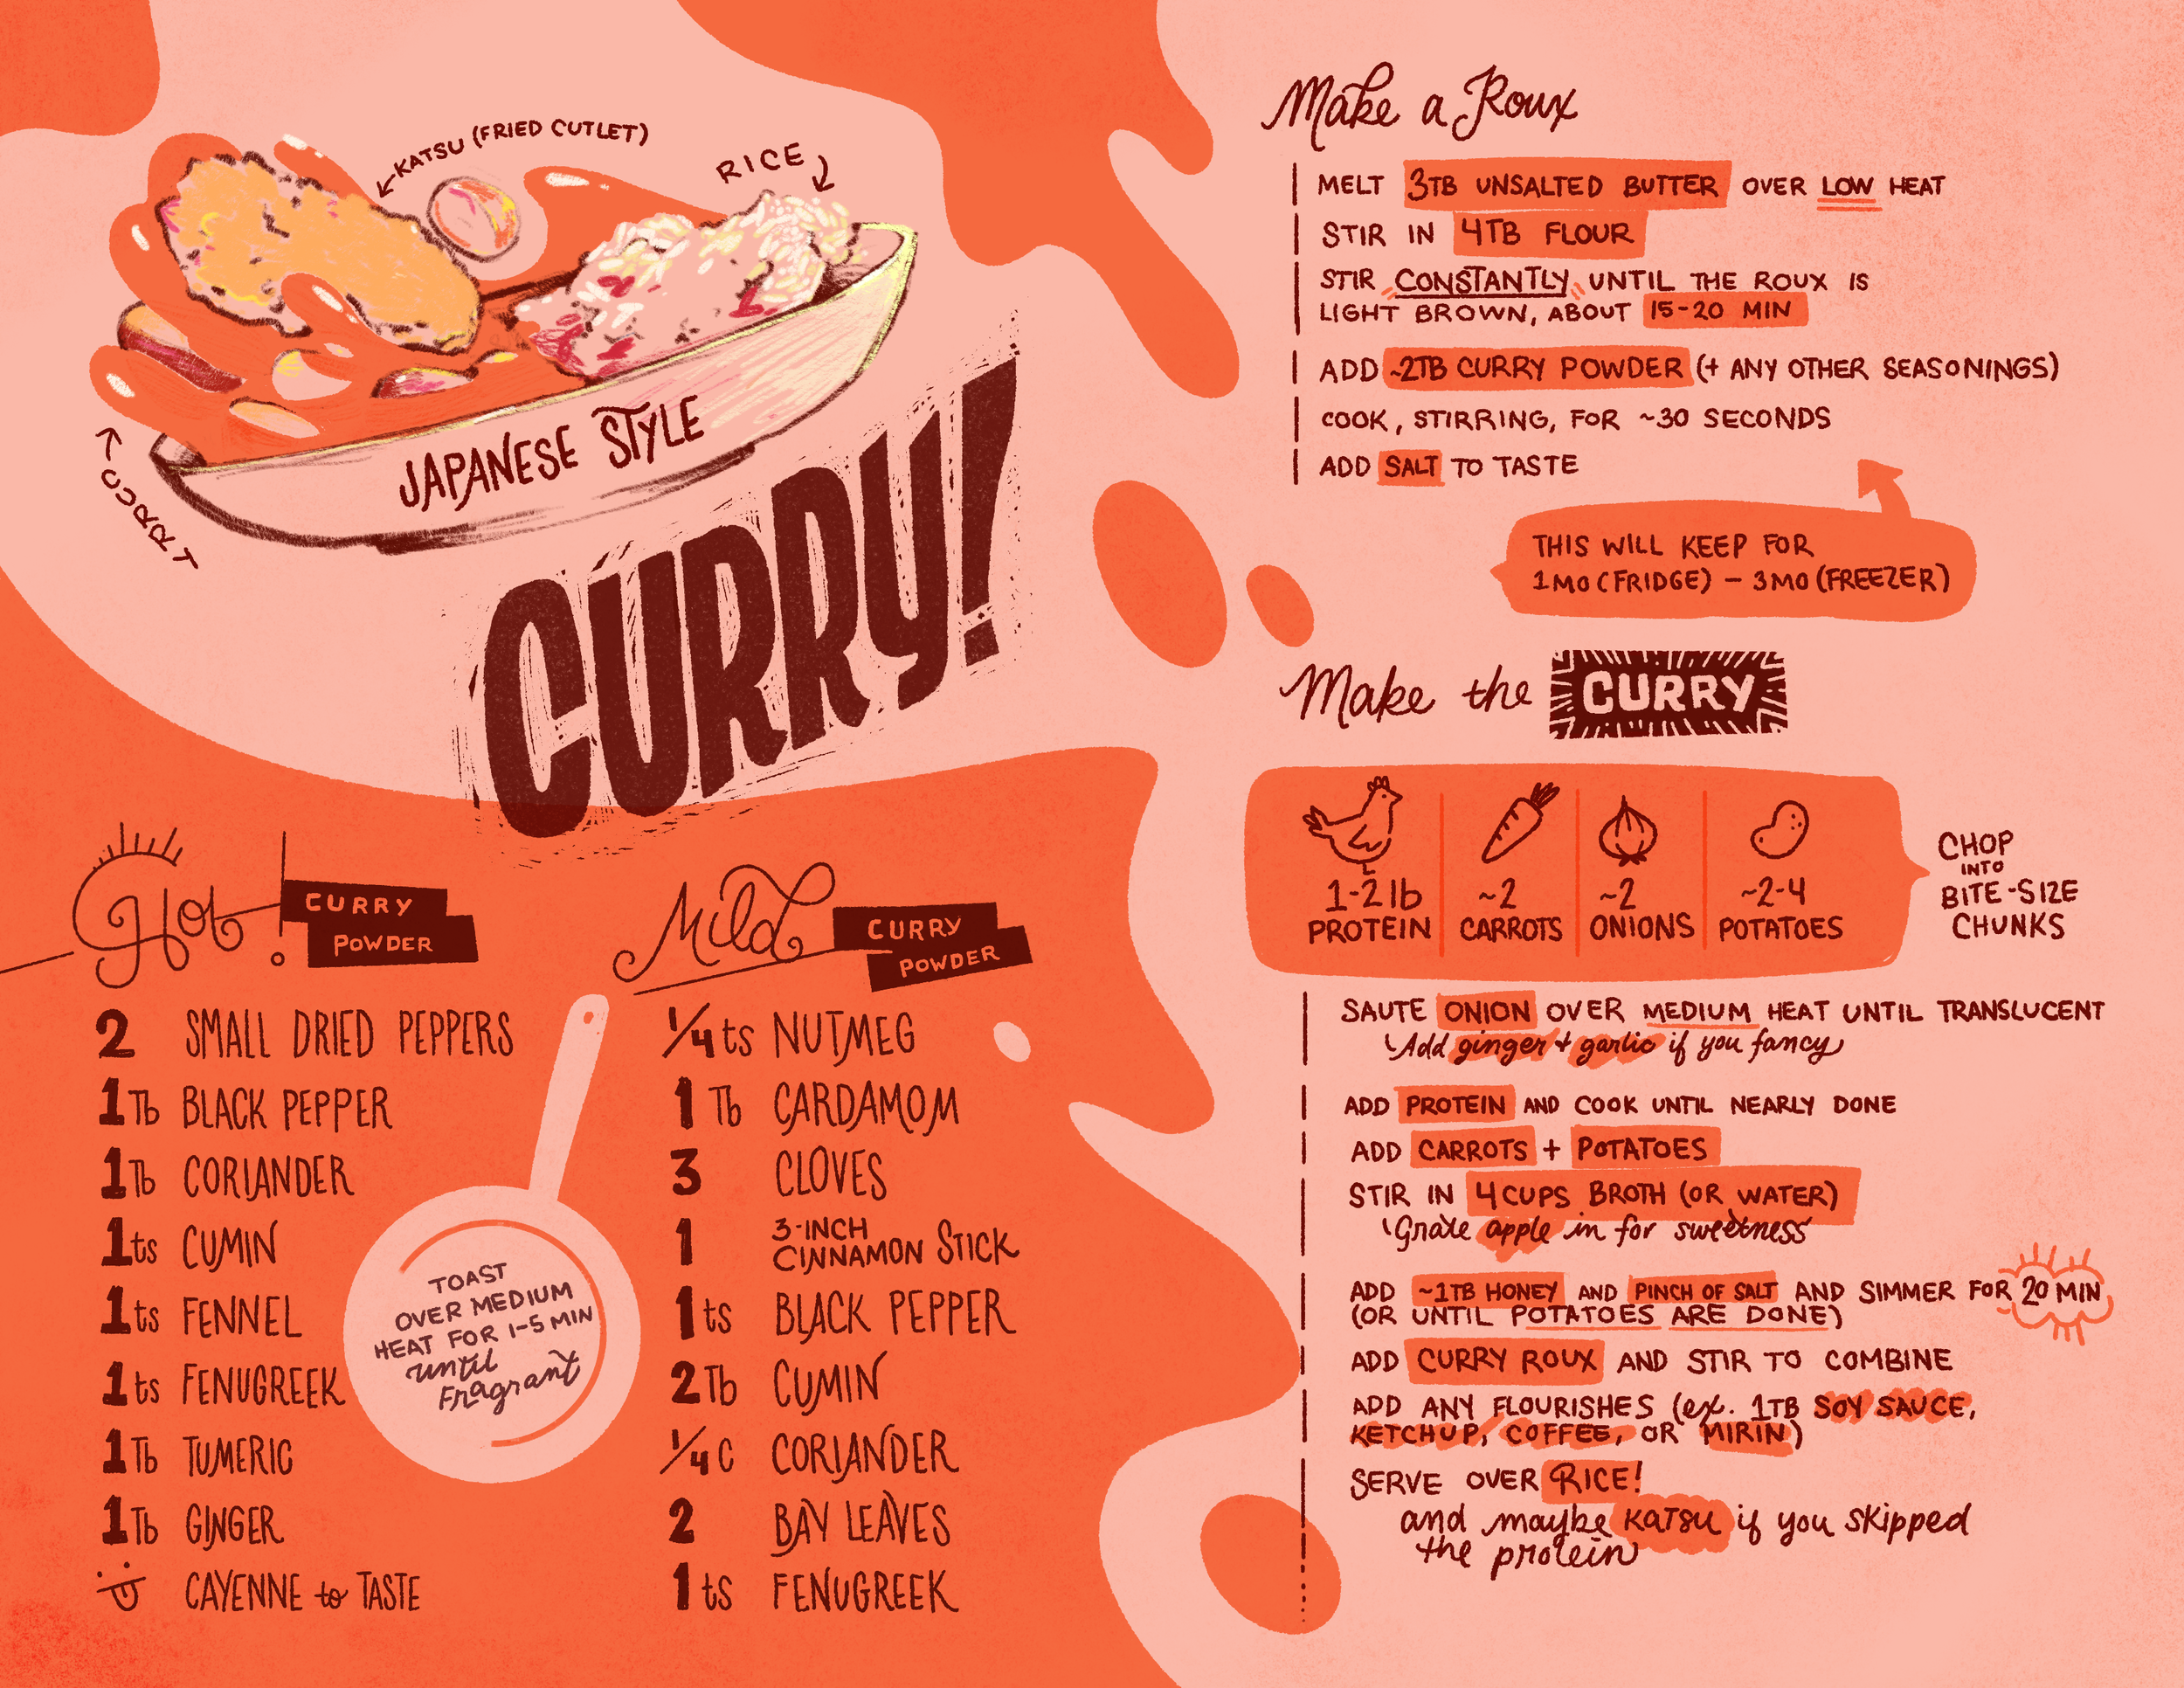 KATSU (FRIED CUTLET)
RICE
CURRY
JAPANESE STYLE
CURRY!
Hot!
CURRY
POWDER
2 SMALL DRIED PEPPERS
1 Tb BLACK PEPPER
1 Tb CORIANDER
1 ts CUMIN
1 ts FENNEL
1 ts FENUGREEK
1 Tb TUMERIC
1 Tb GINGER
CAYENNE to TASTE
TOAST
OVER MEDIUM
HEAT FOR 1-5 MIN
until
Fragrant
Mild
CURRY
POWDER
1/4 ts NUTMEG
1 Tb CARDAMOM
3 CLOVES
1 3-INCH
CINNAMON STICK
1 ts BLACK PEPPER
2 Tb CUMIN
1/4 C CORIANDER
2 BAY LEAVES
1 ts FENUGREEK
Make a Roux
MELT 3TB UNSALTED BUTTER OVER LOW HEAT
STIR IN 4TB FLOUR
STIR CONSTANTLY UNTIL THE ROUX IS
LIGHT BROWN, ABOUT 15-20 MIN
ADD ~2TB CURRY POWDER (+ ANY OTHER SEASONINGS)
COOK, STIRRING, FOR ~30 SECONDS
ADD SALT TO TASTE
THIS WILL KEEP FOR
1 MO (FRIDGE) – 3 MO (FREEZER)
Make the CURRY
1-2 lb
PROTEIN
~2
CARROTS
~2
ONIONS
~2-4
POTATOES
CHOP
INTO
BITE-SIZE
CHUNKS
SAUTE ONION OVER MEDIUM HEAT UNTIL TRANSLUCENT
Add ginger + garlic if you fancy
ADD PROTEIN AND COOK UNTIL NEARLY DONE
ADD CARROTS + POTATOES
STIR IN 4 CUPS BROTH (OR WATER)
Grate apple in for sweetness
ADD ~1TB HONEY AND PINCH OF SALT AND SIMMER FOR 20 MIN
(OR UNTIL POTATOES ARE DONE)
ADD CURRY ROUX AND STIR TO COMBINE
ADD ANY FLOURISHES (ex. 1TB SOY SAUCE,
KETCHUP, COFFEE, OR MIRIN)
SERVE OVER RICE!
and maybe KATSU if you skipped
the protein